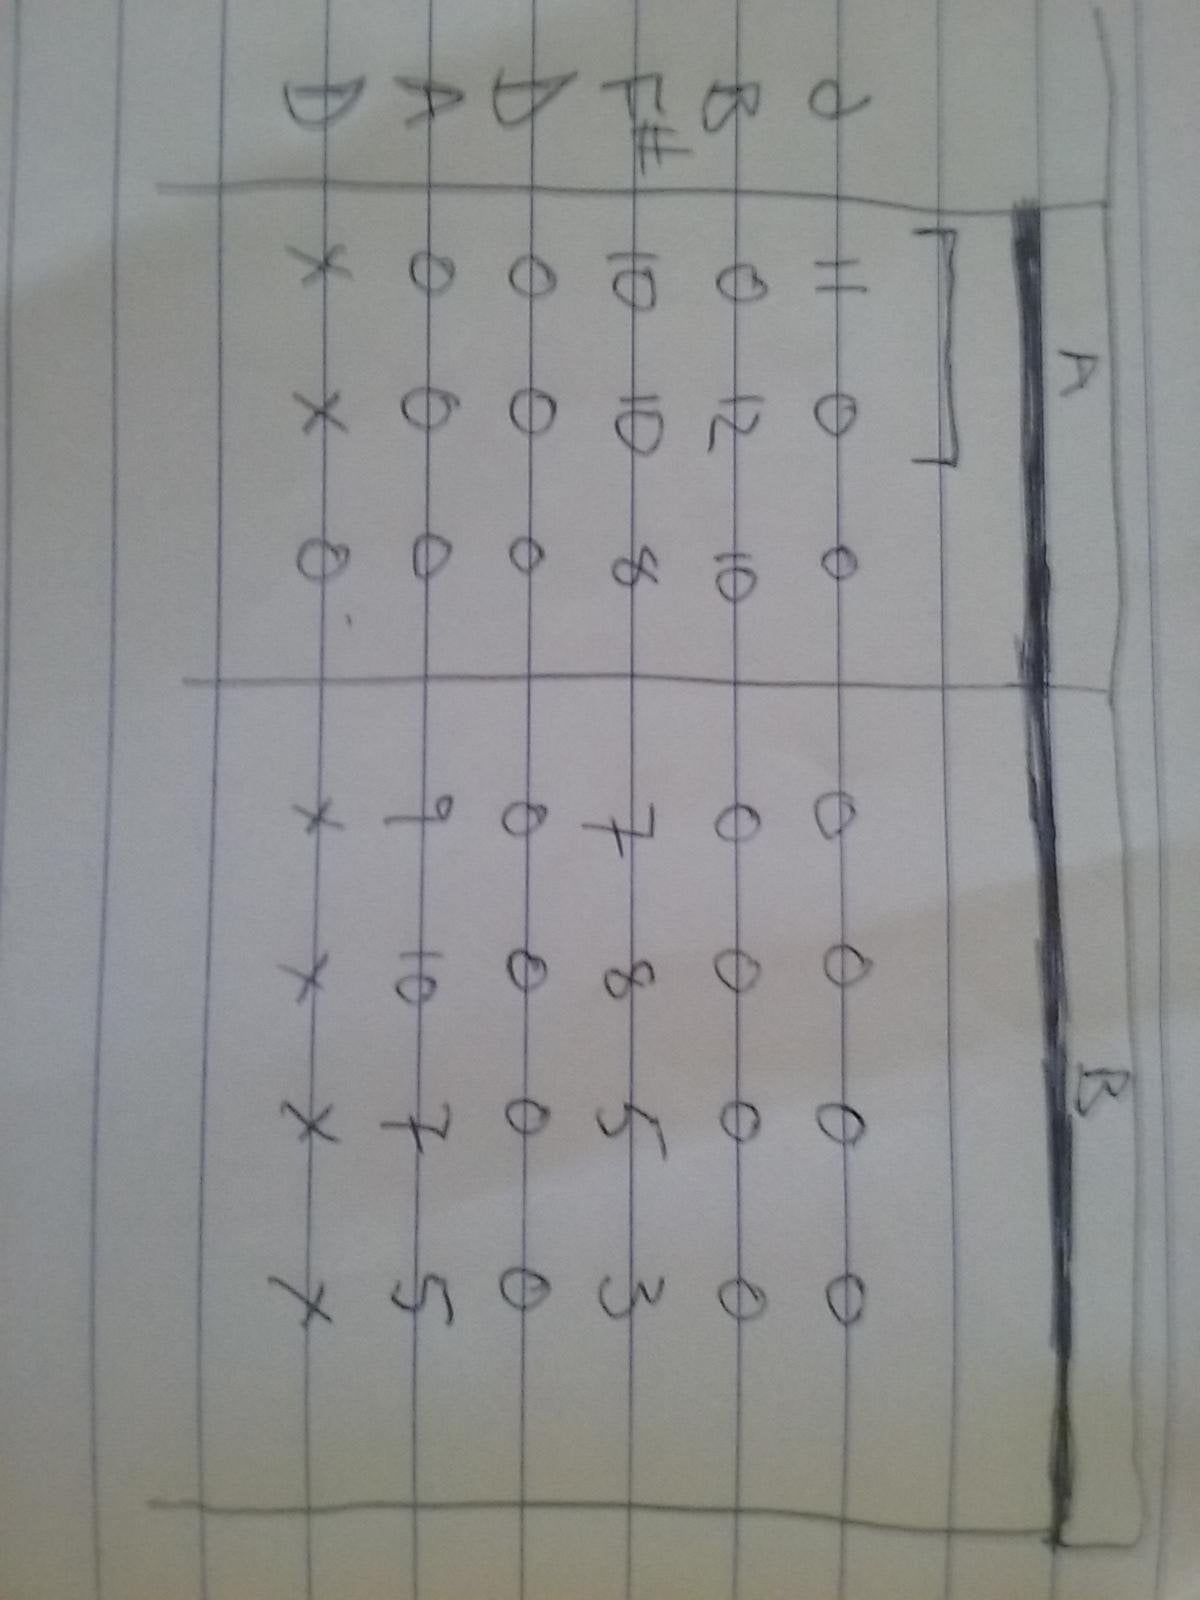 A B
d 11 0 0 0 0 0 0
B 0 12 10 0 0 0 0
F# 10 10 8 7 8 5 3
D 0 0 0 0 0 0 0
A 0 0 0 9 10 7 5
D x x 0 x x x x